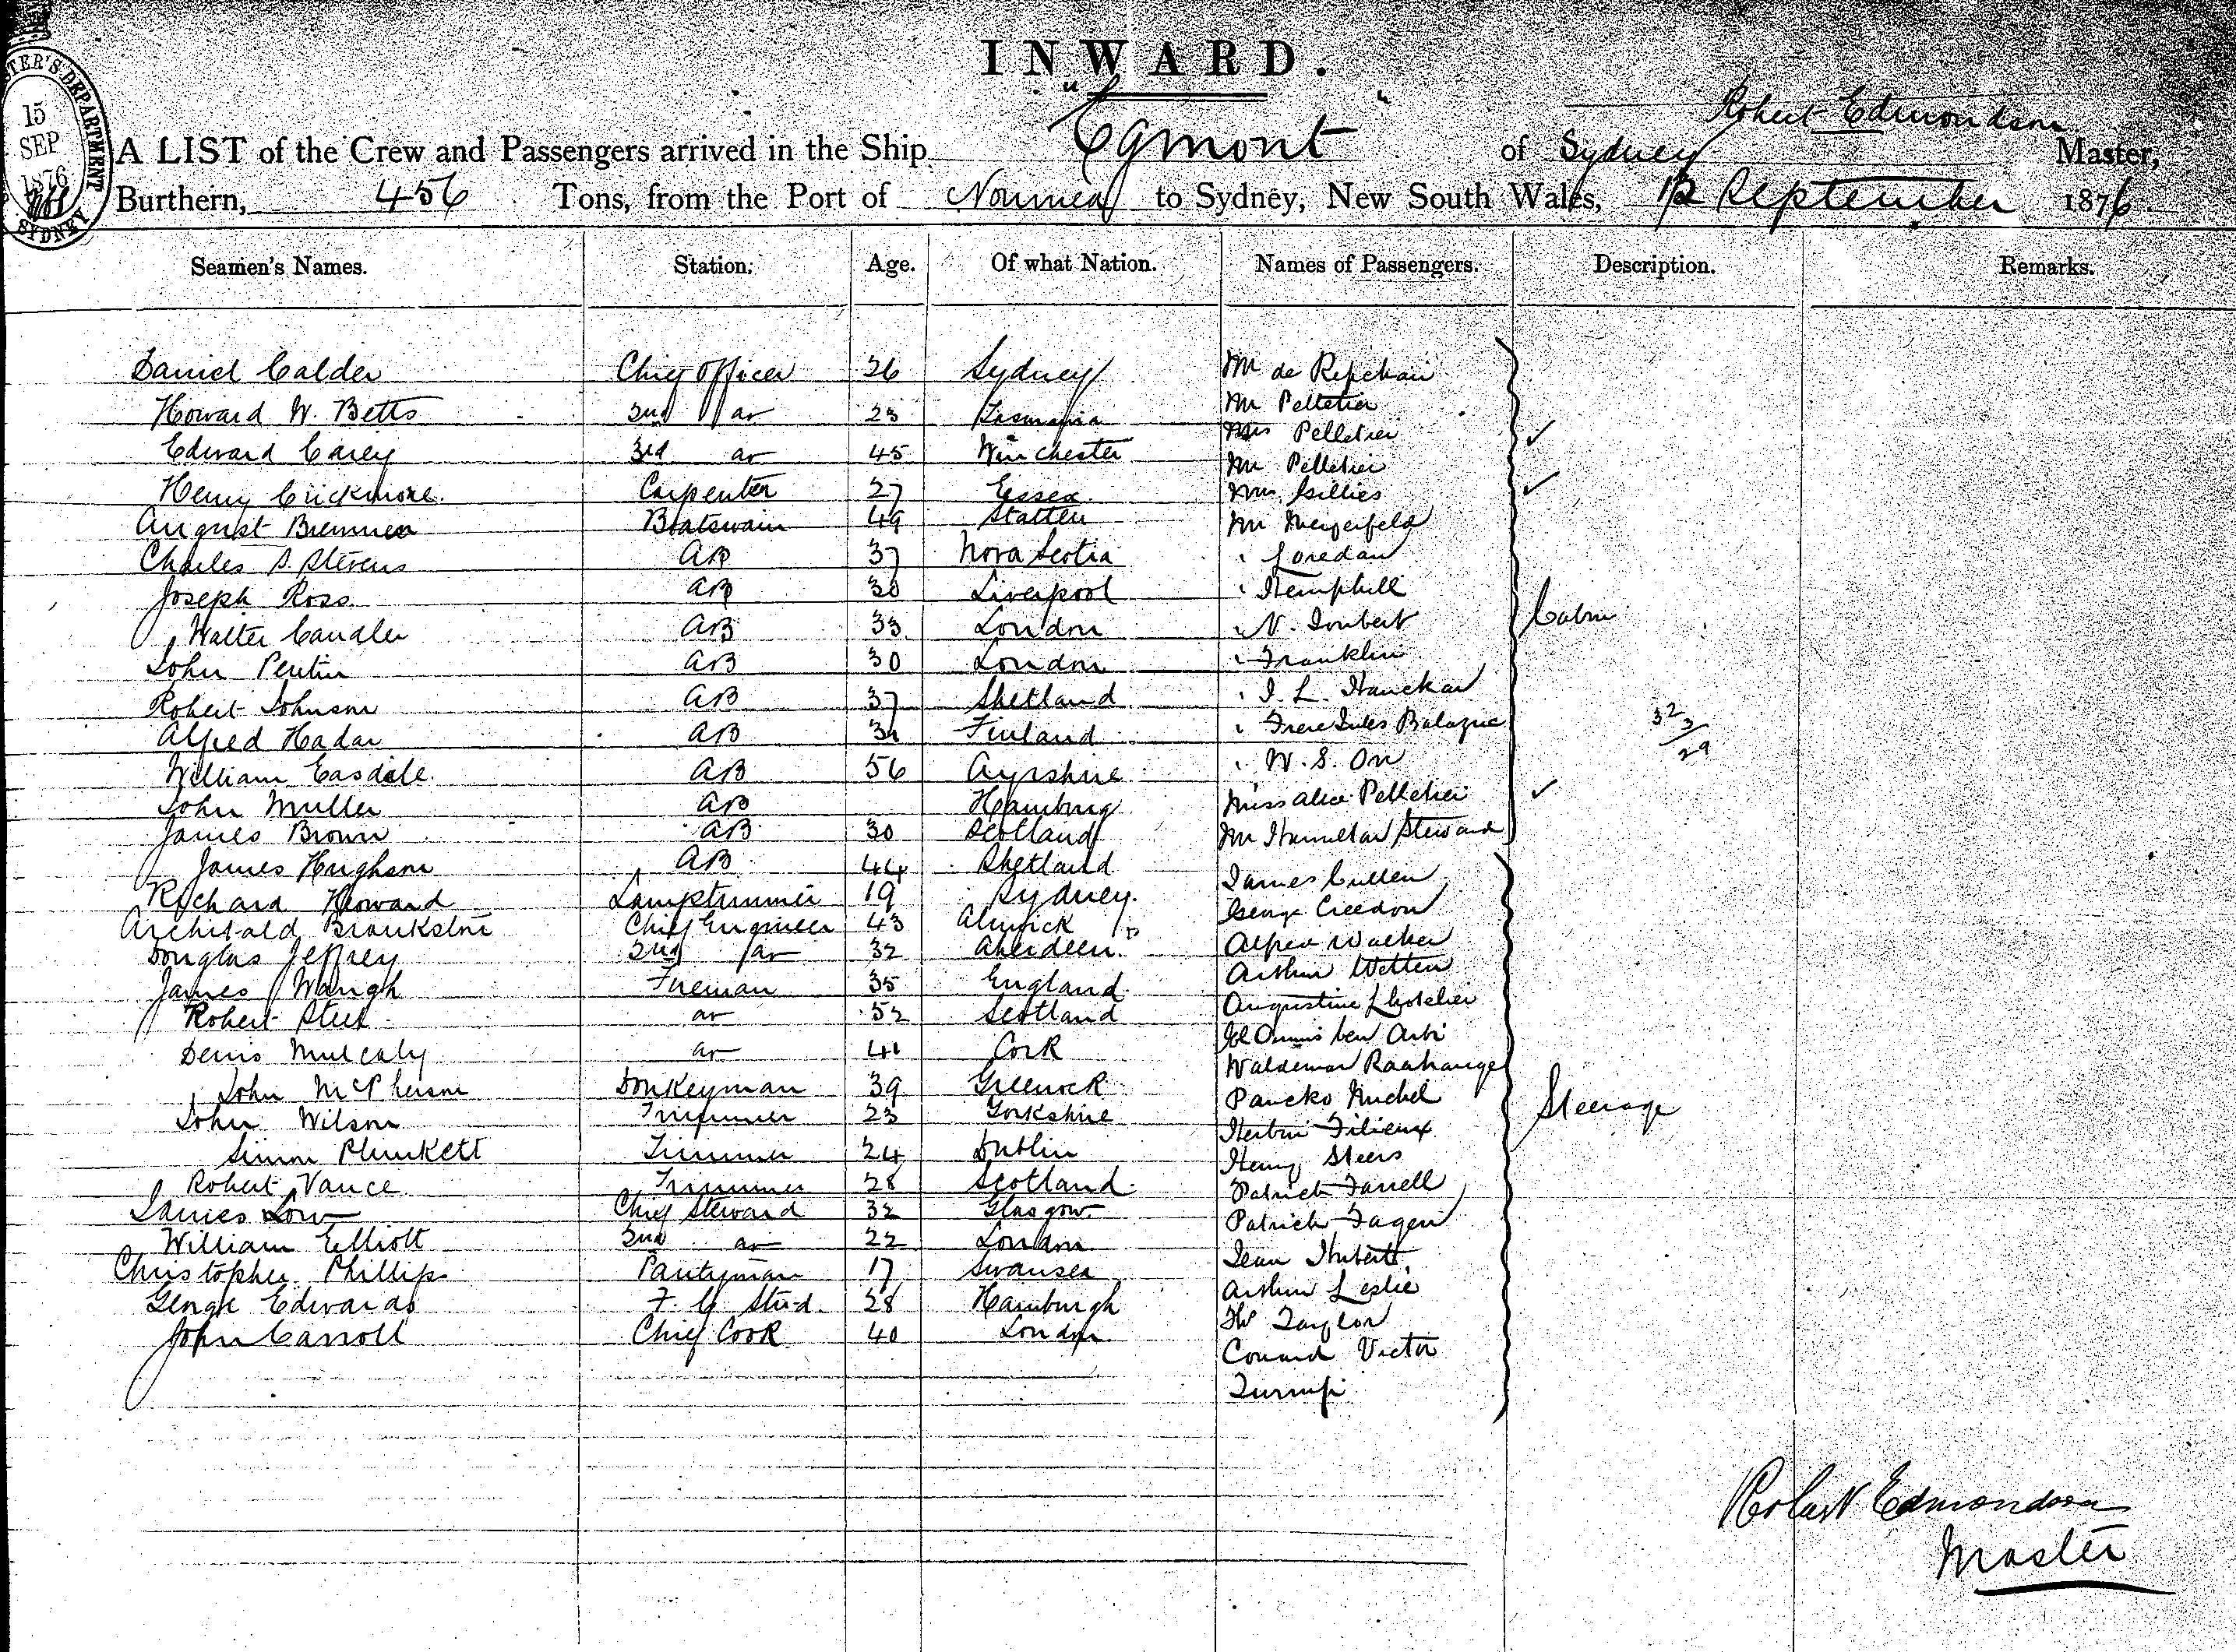 INWARD.
15
SEP
1876
SYDNEY
Robert Edmondson
A LIST of the Crew and Passengers arrived in the Ship "Egmont" of Sydney Master,
Burthern, 456 Tons, from the Port of Noumea to Sydney, New South Wales, 12 September 1876
Seamen's Names. Station. Age. Of what Nation. Names of Passengers. Description. Remarks.
Daniel Calder Chief Officer 26 Sydney Mr de
Howard W. Betts 2nd do 23 Tasmania Mr Pelletier
Edward Carey 3rd do 45 Winchester Mrs Pelletier
Mr Pelletier
Henry Crickmore. Carpenter 27 Essex Mrs Gillies
August Bremner Boatswain 49 Statten Mr
Charles S. Stevens AB 37 Nova Scotia Loredan
Joseph Ross AB 30 Liverpool Hemphill
Walter Candler AB 33 London N. Imbert Cabin
John AB 30 London Franklin
Robert Johnson AB 37 Shetland J L.
Alfred Hadar AB Finland Frere Jules 32
3
29
William Easdale AB 56 Ayrshire W. S. Orr
John Muller AB Hamburg Miss Alice Pelletier
James Brown AB 30 Scotland Mr Hamilton Steward
James Hughson AB 44 Shetland James Cullen
Richard Howard Lamptrimmer 19 Sydney. George Creedon
Archibald Chief Engineer 43 Alnwick
Douglas Jeffrey 2nd do 32 Aberdeen. Alfred Walker
James Waugh Fireman 35 England Arthur
Robert Steel do 52 Scotland Augustine
Denis Mulcahy do 41 Cork ben
Waldemar
John McPherson Donkeyman 39 Greenock Michel
John Wilson Trimmer 23 Yorkshire Steerage
Simon Plunkett Trimmer 24 Dublin Henry Steers
Robert Vance Trimmer 28 Scotland Patrick Farrell
James Low Chief Steward 32 Glasgow Patrick Fagen
William Elliott 2nd do 22 London Jean
Christopher Phillips Pantryman 17 Swansea Arthur Leslie
George Edwards F. C. Stwd. 28 Hamburgh Taylor
John Carroll Chief Cook 40 London Victor
Robert Edmondson
Master